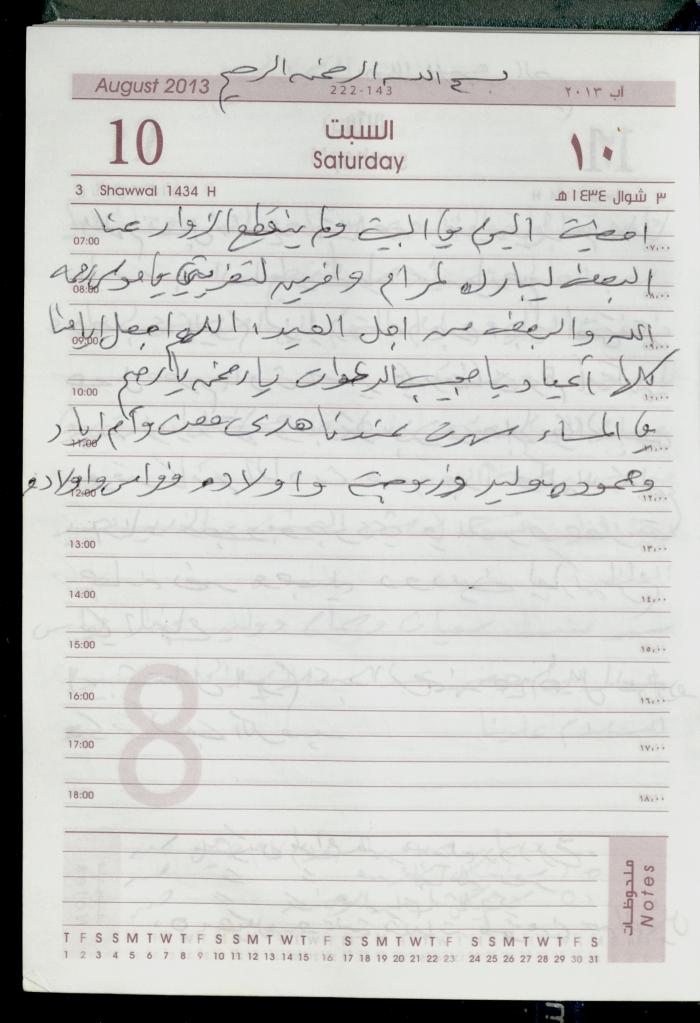 بسم الله الرحمن الرحيم
August 2013 222-143 آب ٢٠١٣
10 السبت ١٠
Saturday
3 Shawwal 1434 H ٣ شوال ١٤٣٤ هـ
امضيت اليوم في البيت ولم ينقطع الزوار عنا
07:00 ٠٧,٠٠
البعض ليبارك لمرام وآخرين لتعزيتي رحمه
08:00 ٠٨,٠٠
الله والبعض من اجل العيد، اللهم اجعل ايامنا
09:00 ٠٩,٠٠
كلها أعياد يا مجيب الدعوات يا رحمن يا رحيم
10:00 ١٠,٠٠
في المساء سهرت عندنا هدى وأم اياد
11:00 ١١,٠٠
وحموده وليد وزوجته واولاده فواس واولاده
12:00 ١٢,٠٠
13:00 ١٣,٠٠
14:00 ١٤,٠٠
15:00 ١٥,٠٠
16:00 ١٦,٠٠
17:00 ١٧,٠٠
18:00 ١٨,٠٠
8
ملاحظات
Notes
T F S S M T W T F S S M T W T F S S M T W T F S S M T W T F S
1 2 3 4 5 6 7 8 9 10 11 12 13 14 15 16 17 18 19 20 21 22 23 24 25 26 27 28 29 30 31